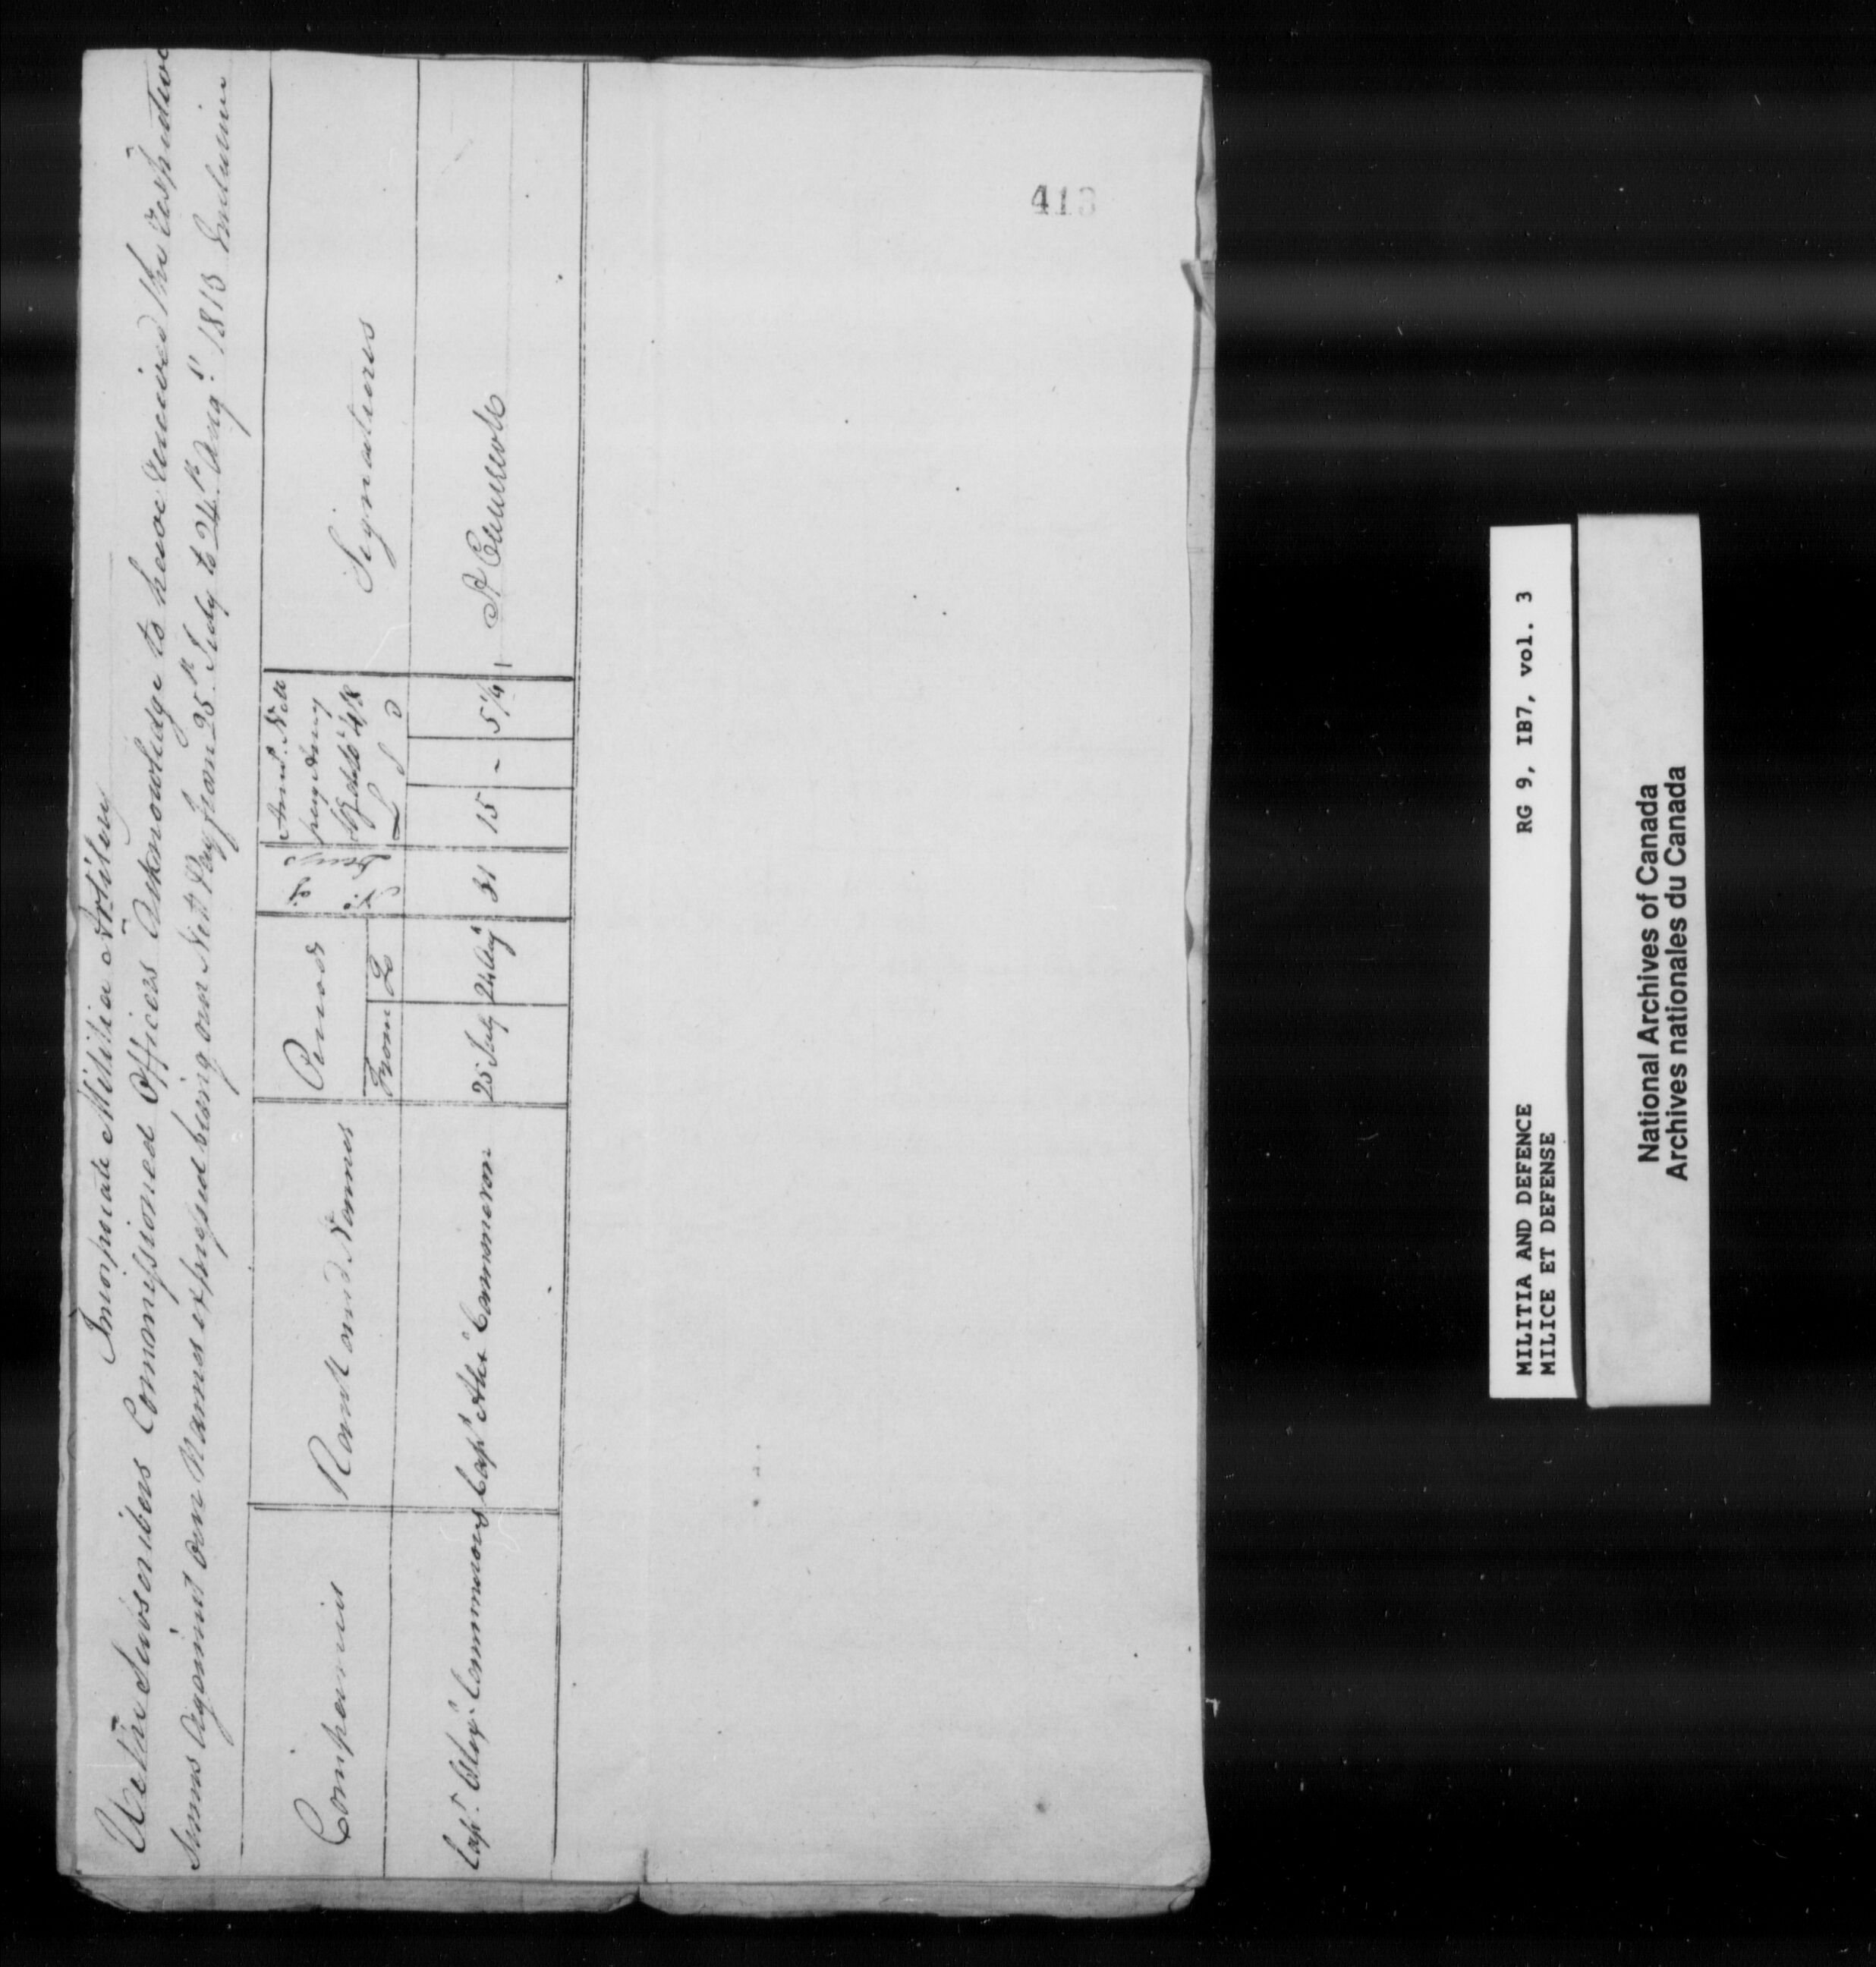 Incorporate Militia Artillery
We the Subscribers Commissioned Officers Acknowledge to have received the respective
Sums Against our Names expressed being our Nett Pay from 25th July to 24th Augt 1813 Inclusive
Companies
Rank and Names
Period
From
To
No. of Days
Amt. Nett
pay Army
4/8
L S D
Signatures
Capt Alexr Cammerons
Capt Alexr Cammeron
25 July
24 Augt
31
15 - 5 1/4
A Cameron
413
MILITIA AND DEFENCE RG 9, IB7, vol. 3
MILICE ET DEFENSE
National Archives of Canada
Archives nationales du Canada